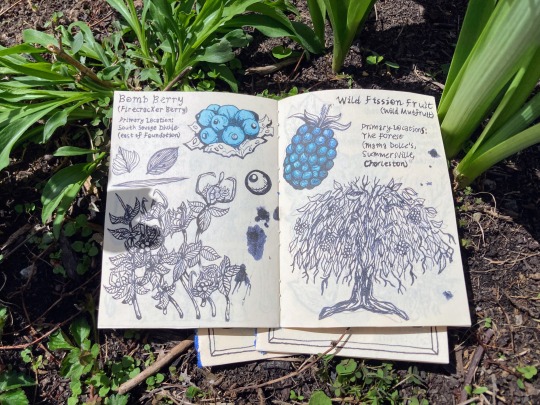 Bomb Berry
(Firecracker Berry)
Primary Location:
South Savage Divide
(East of Foundation)
Wild Fission Fruit
(Wild Mutfruit)
Primary Locations:
The Forest
(Mama Dolce's,
Summersville,
Charleston)